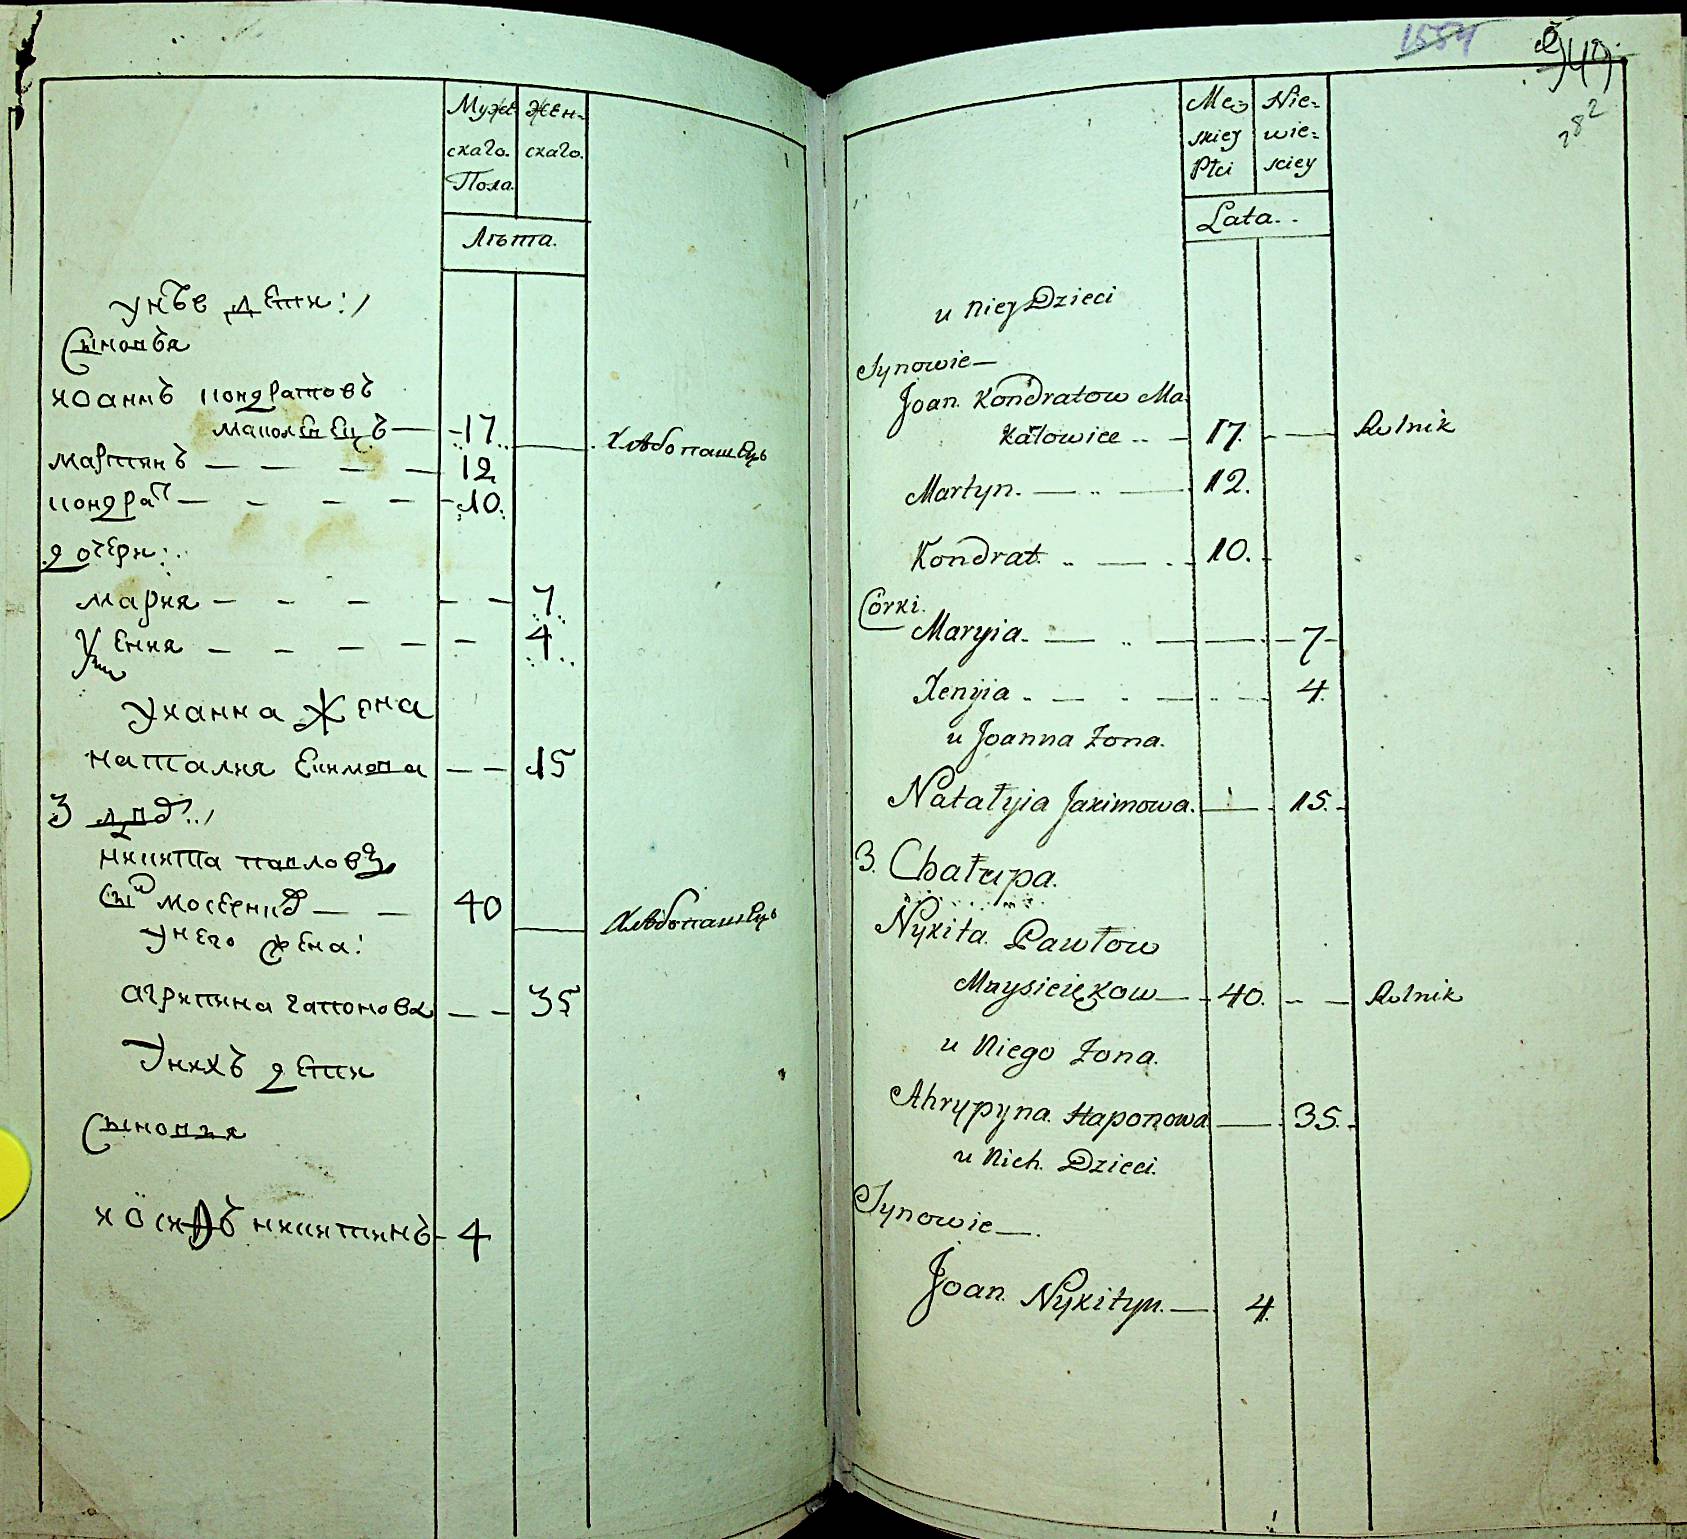 Мужe- Жен-
скаго. скаго.
Пола.
Лѣта.
У нѣе дети:
Сыновья
Иоаннъ Кондратовъ
17 Хлѣбопашецъ
Мартинъ — — — — 12
Кондрат — — — — 10.
дочери:
Мария — — — — — 7
Ксения — — — — — 4
У Ианна Жена
Наталия Екимова — — 15
3 двор
Никита Павловъ
сын — — 40 Хлѣбопашецъ
У него жена:
Агрипина Гапонова — — 35
У нихъ дети
Сыновья
Никитинъ 4
1554
282
Mez- Nie-
skiey wie-
Płci sciey
Lata..
u niey Dzieci
Synowie—
Joan. Kondratow Ma-
kałowiec .. — 17. — Rolnik
Martyn. — .. — 12.
Kondrat. .. — .. 10.
Córki.
Maryia. — .. — — 7
Xenyia .. — .. — 4.
u Joanna Żona.
Natałyia Jakimowa. — 15.
3. Chałupa.
Nykita Pawłow
40. .. — Rolnik
u Niego Żona.
Ahrypyna Haponowa — 35.
u Nich. Dzieci.
Synowie—.
Joan. Nykityn. — 4.